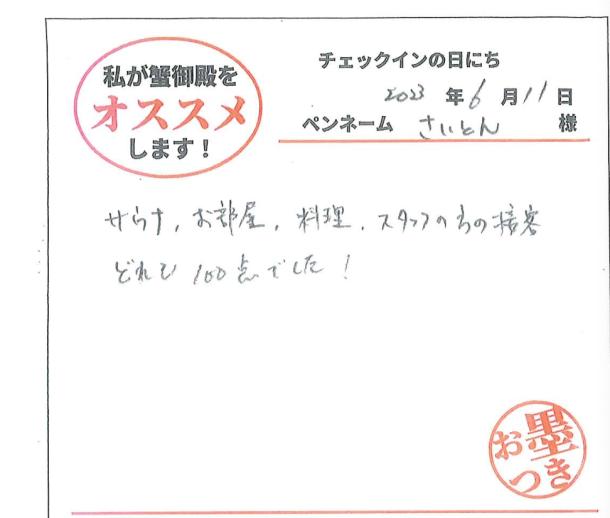 私が蟹御殿を
オススメ
します!
チェックインの日にち
2023 年 6 月 11 日
ペンネーム さいとん 様
サウナ、お部屋、料理、スタッフの方の接客
どれも 100点でした!
お墨
つき